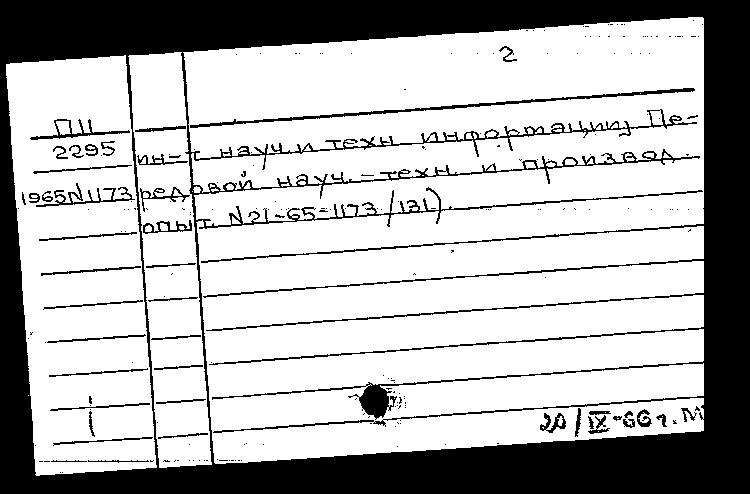 2
П11
2295
1965N1173
ин-т науч. и техн. информации, Пе-
редовой науч.-техн. и производ.
опыт. N21-65-1173/131).
20/IX-66 г. М